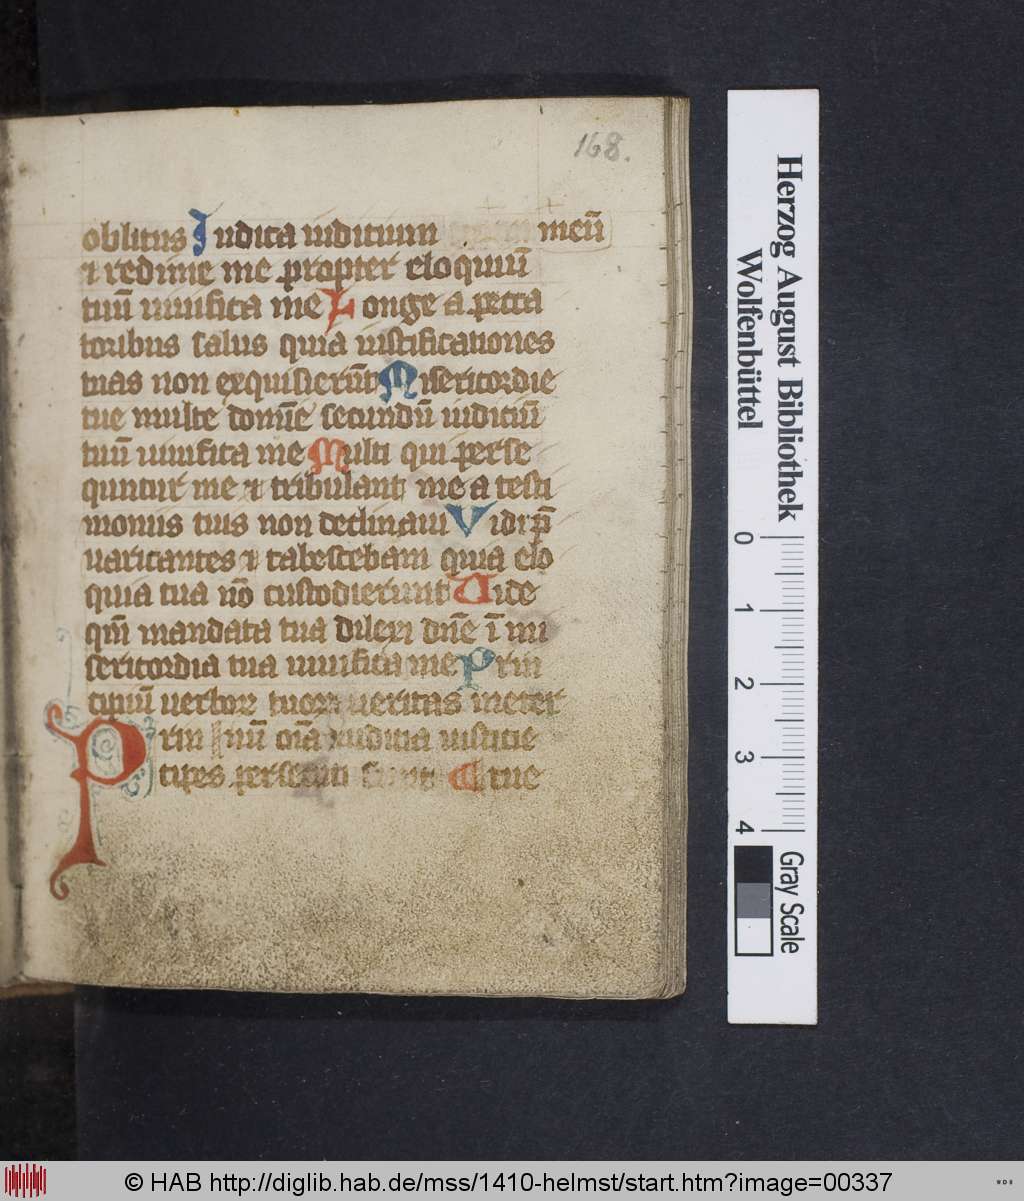 168.
oblitus Iudica iudicium meū
⁊ redime me propter eloquiū
tuū uiuifica me Longe a pecca
toribus salus quia iustificationes
tuas non exquisierūt Misericordie
tue multe domīe secundū iudiciū
tuū uiuifica me Multi qui perse
quntur me ⁊ tribulant me a testi
moniis tuis non declinaui Vidi p̄
uaricantes ⁊ tabescebam quia elo
quia tua nō custodierunt Uide
qm̄ mandata tua dilexi dn̄e ī mi
sericordia tua uiuifica me Prin
cipiū uerborꝝ tuorꝝ ueritas in eter
nū oīa iudicia iusticie
tue
Prin
cipes persecuti sunt
Herzog August Bibliothek
Wolfenbüttel
0 1 2 3 4
Gray Scale
© HAB http://diglib.hab.de/mss/1410-helmst/start.htm?image=00337